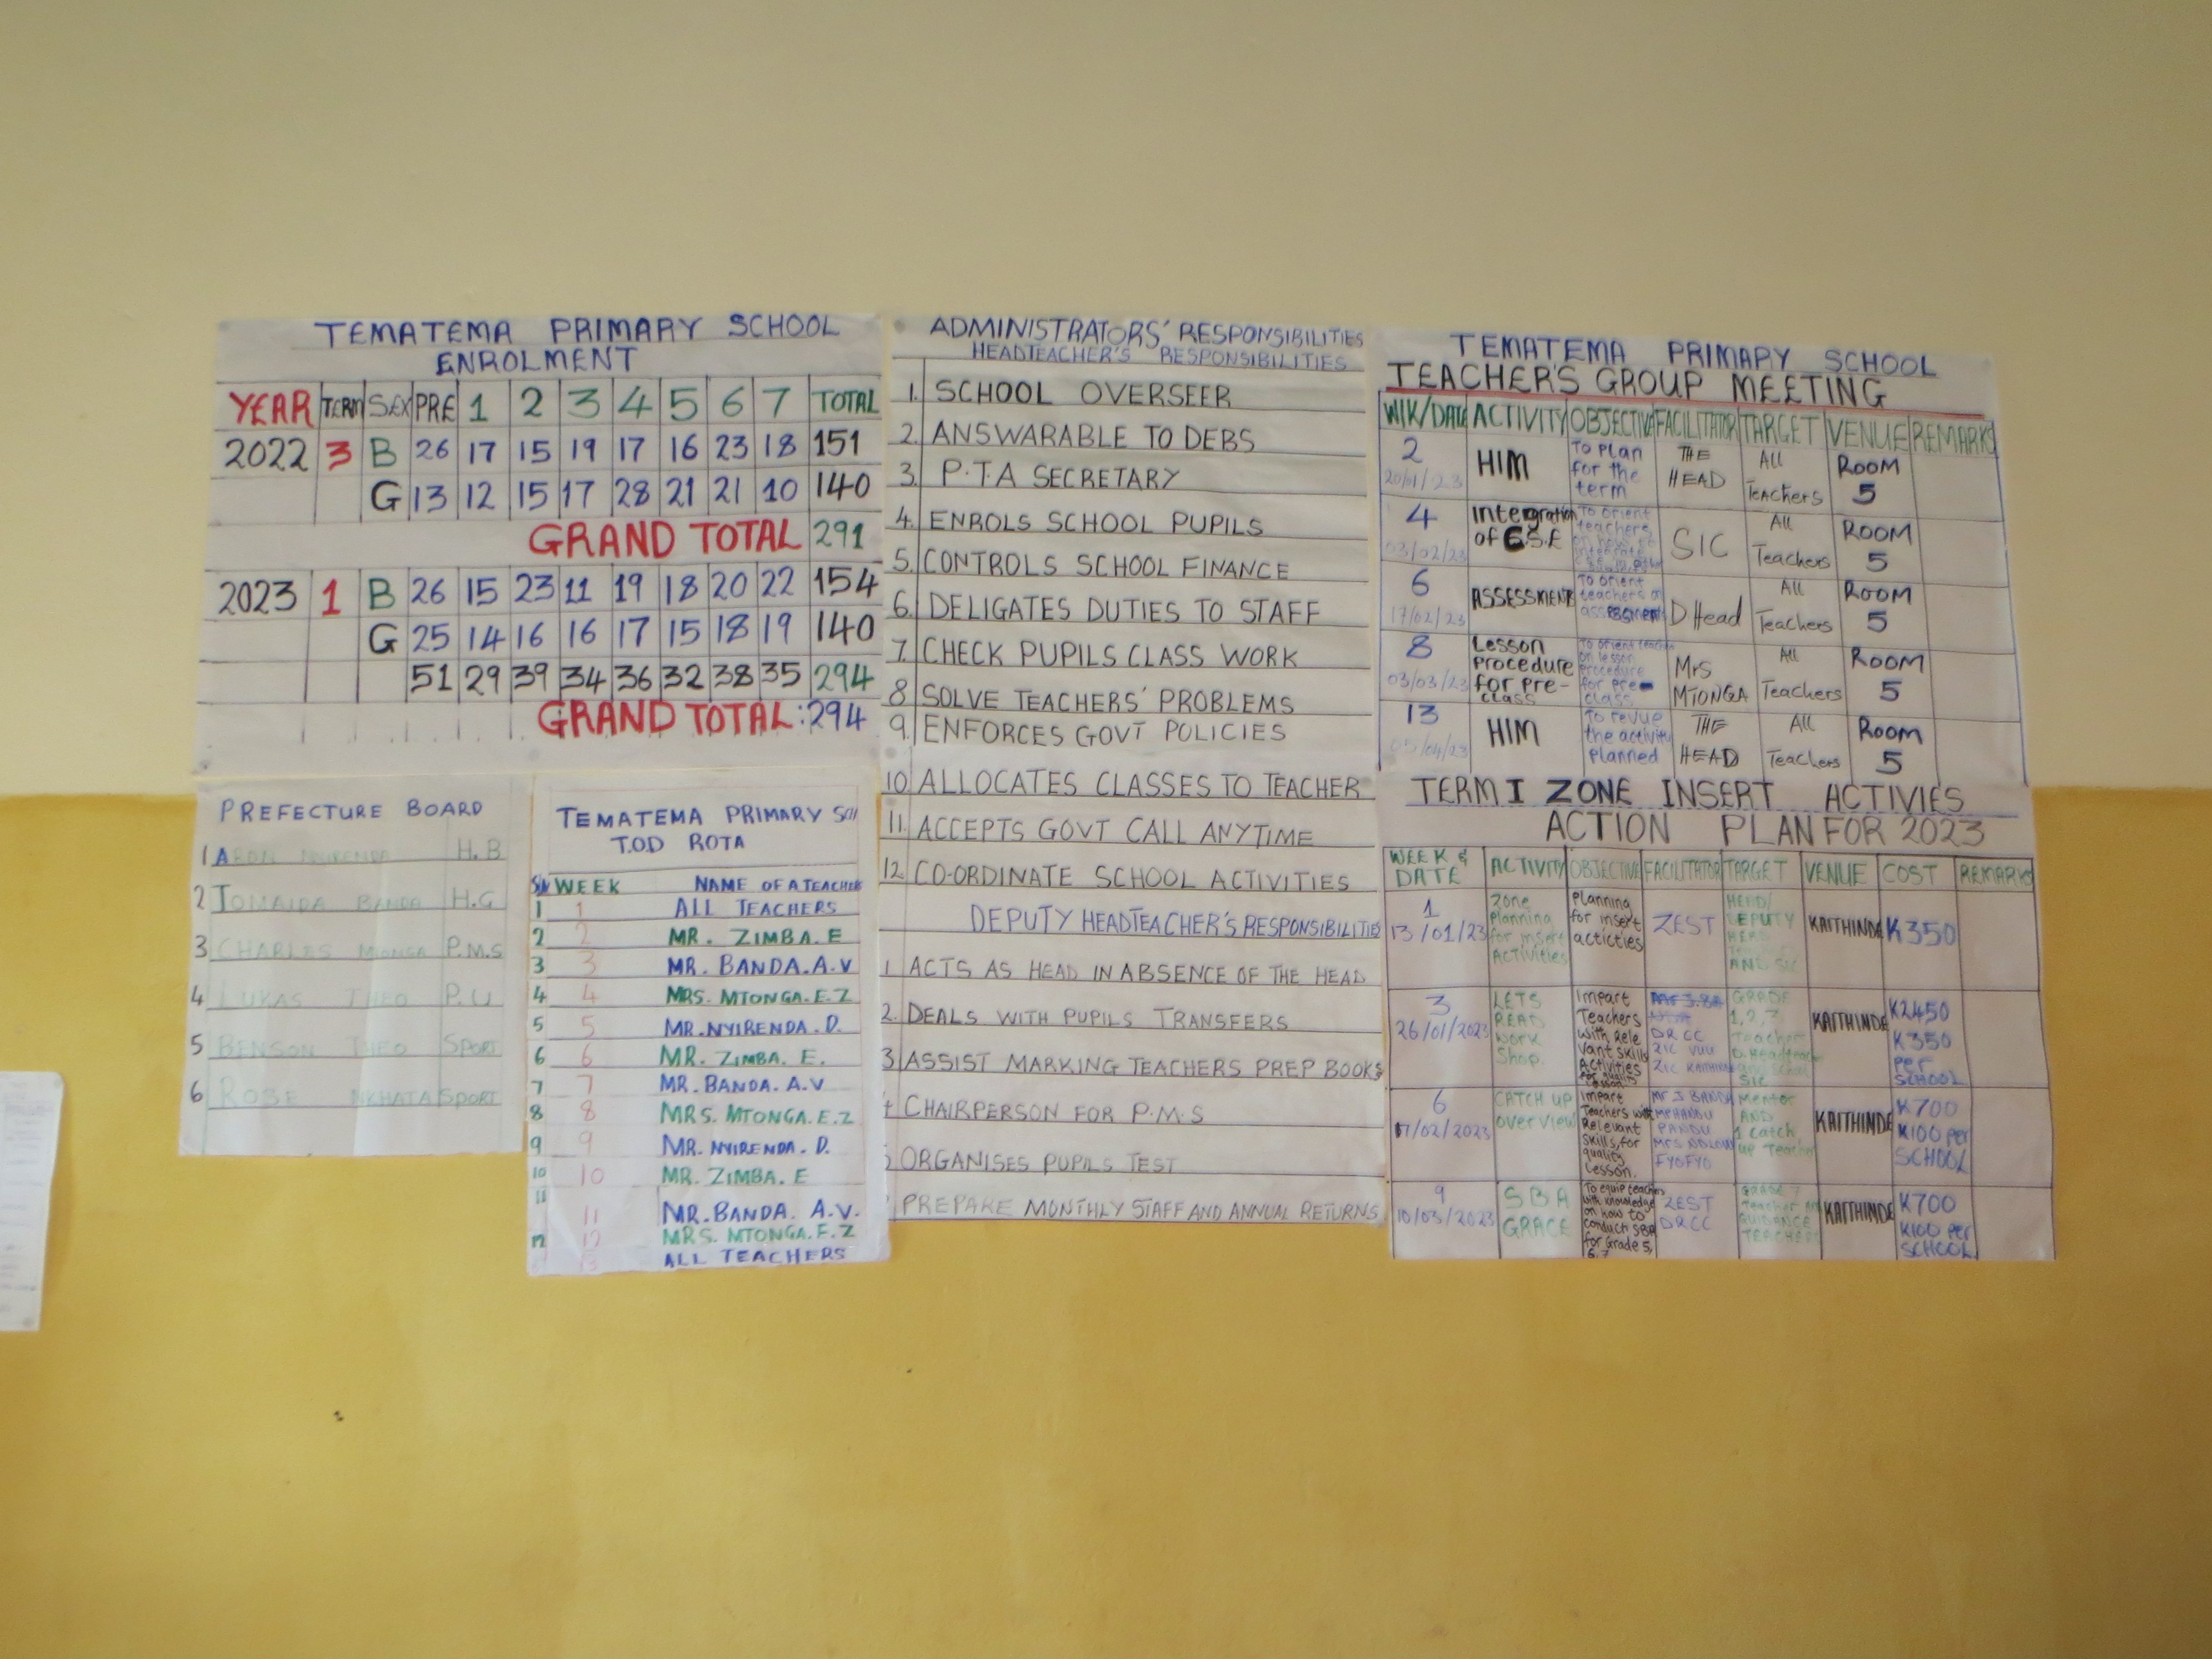 TEMATEMA PRIMARY SCHOOL
ENROLMENT
YEAR TERM SEX PRE 1 2 3 4 5 6 7 TOTAL
2022 3 B 26 17 15 19 17 16 23 18 151
G 13 12 15 17 28 21 21 10 140
GRAND TOTAL 291
2023 1 B 26 15 23 11 19 18 20 22 154
G 25 14 16 16 17 15 18 19 140
51 29 39 34 36 32 38 35 294
GRAND TOTAL: 294
PREFECTURE BOARD
1 ARON NYIRENDA H.B
2 BANDA H.G
3 CHARLES P.M.S
4 LUKAS THEO
5 BENSON THEO SPORT
6 ROBE NKHATA SPORT
TEMATEMA PRIMARY SCH
T.O.D ROTA
WEEK NAME OF A TEACHER
1 1 ALL TEACHERS
2 2 MR. ZIMBA. E
3 3 MR. BANDA. A.V
4 4 MRS. MTONGA. E.Z
5 5 MR. NYIRENDA. D.
6 6 MR. ZIMBA. E.
7 7 MR. BANDA. A.V
8 8 MRS. MTONGA. E.Z
9 9 MR. NYIRENDA. D.
10 10 MR. ZIMBA. E
11 11 MR. BANDA. A.V.
12 12 MRS. MTONGA. E.Z
13 ALL TEACHERS
ADMINISTRATORS' RESPONSIBILITIES
HEADTEACHER'S RESPONSIBILITIES
1. SCHOOL OVERSEER
2. ANSWARABLE TO DEBS
3. P.T.A SECRETARY
4. ENROLS SCHOOL PUPILS
5. CONTROLS SCHOOL FINANCE
6. DELIGATES DUTIES TO STAFF
7. CHECK PUPILS CLASS WORK
8 SOLVE TEACHERS' PROBLEMS
9. ENFORCES GOVT POLICIES
10 ALLOCATES CLASSES TO TEACHER
11. ACCEPTS GOVT CALL ANYTIME
12. CO-ORDINATE SCHOOL ACTIVITIES
DEPUTY HEADTEACHER'S RESPONSIBILITIES
1 ACTS AS HEAD IN ABSENCE OF THE HEAD
2. DEALS WITH PUPILS TRANSFERS
3 ASSIST MARKING TEACHERS PREP BOOKS
4 CHAIRPERSON FOR P.M.S
5 ORGANISES PUPILS TEST
PREPARE MONTHLY STAFF AND ANNUAL RETURNS
TEMATEMA PRIMARY SCHOOL
TEACHER'S GROUP MEETING
WIK/DATE ACTIVITY OBJECTIVE FACILITATOR TARGET VENUE REMARKS
2 20/01/23 HIM To plan for the term THE HEAD All Teachers ROOM 5
4 03/02/23 Intergration of C.S.E To orient teachers on how to integrate SIC All Teachers ROOM 5
6 17/02/23 ASSESSMENT To orient teachers on assessment D Head All Teachers ROOM 5
8 03/03/23 Lesson procedure for pre-class To orient teachers on lesson procedure for pre-class Mrs MTONGA All Teachers ROOM 5
13 05/04/23 HIM To revue the activity planned THE HEAD All Teachers ROOM 5
TERM I ZONE INSERT ACTIVIES
ACTION PLAN FOR 2023
WEEK & DATE ACTIVITY OBJECTIVE FACILITATOR TARGET VENUE COST REMARKS
1 13/01/23 Zone planning for insert ACTIVITIES planning for insert acticties ZEST HEAD/ DEPUTY HEAD AND SIC KAITHINDE K350
3 26/01/2023 LETS READ work Shop. Impart Teachers with Rele vant skills Activities DRCC ZIC VUU ZIC KAITHINDE GRADE 1,2,7 Teacher KAITHINDE K2450 K350 PER SCHOOL
6 17/02/2023 CATCH UP over view Impart Teachers with Relevant skills, for quality Lesson. Mr J BANDA PANDU MRS FYOFYO Mentor AND 1 Catch up Teacher KAITHINDE K700 K100 per SCHOOL
9 10/03/2023 SBA GRACE To equip teachers with knowledge on how to conduct SBA for Grade 5, 6, 7 ZEST DRCC GRADE 7 Teacher GUIDANCE TEACHERS KAITHINDE K700 K100 per SCHOOL